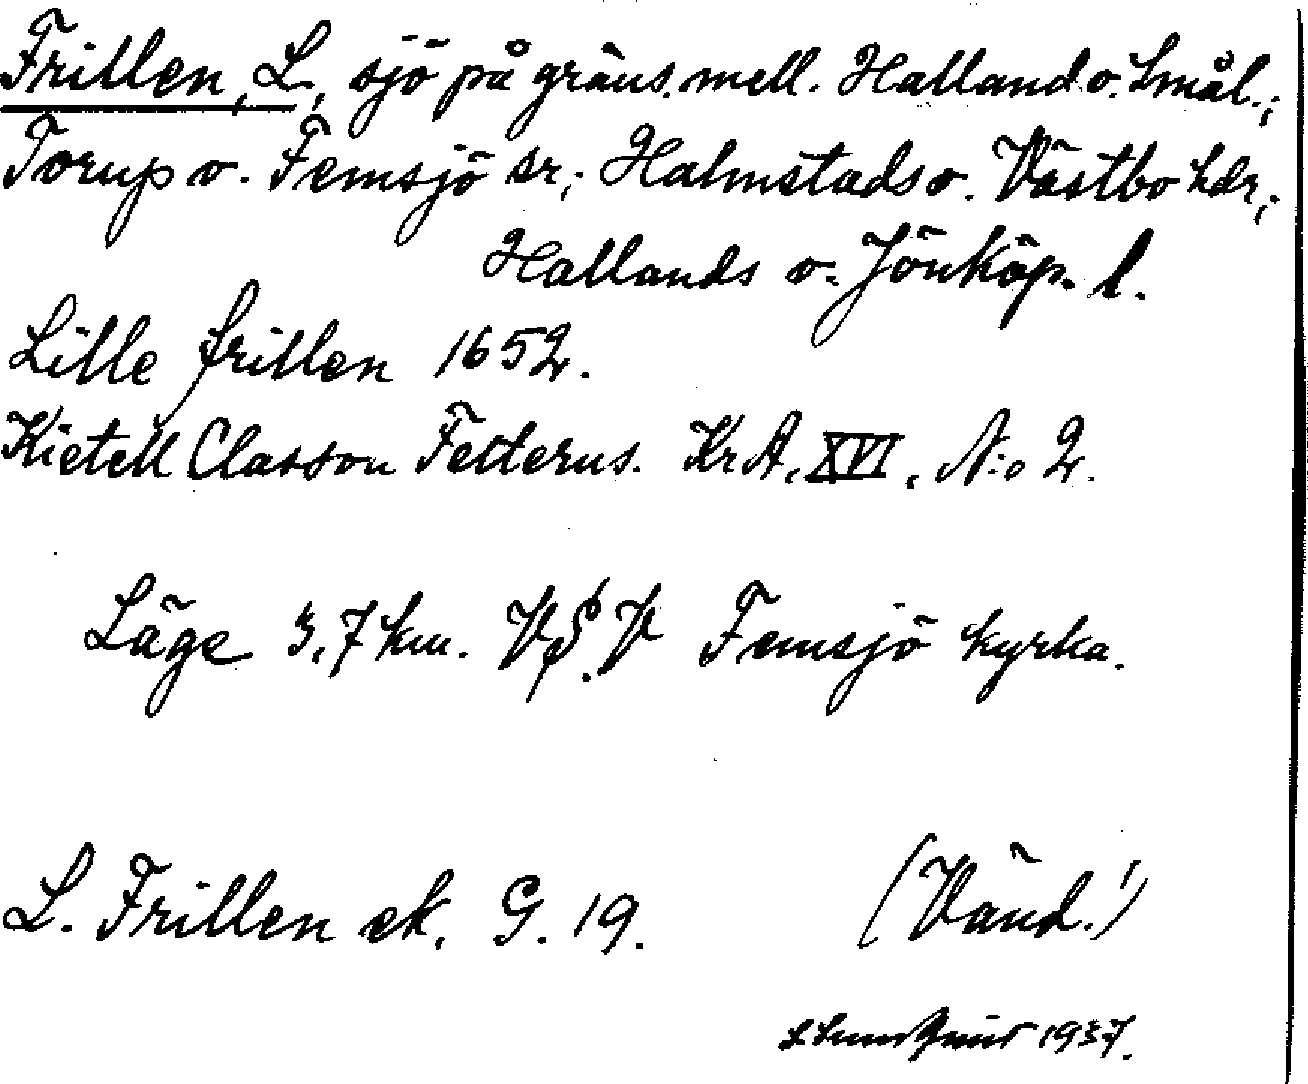 Frillen, L., sjö på gräns. mell. Halland o. Smål.;
Torup o. Femsjö sr; Halmstads o. Västbo hdr;
Hallands o. Jönköp. l.
Lille frillen 1652.
Kietell Classon Felterus. KrA. XVI. N:o 2.
Läge 3,7 km. V.S.V Femsjö kyrka.
L. Frillen ek. G. 19.
(Vänd!)
1937.